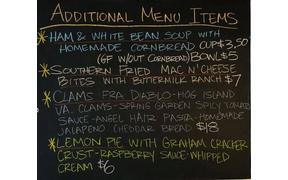 ADDITIONAL MENU ITEMS
HAM & WHITE BEAN SOUP WITH
HOMEMADE CORNBREAD CUP $3.50
(GF W/OUT CORNBREAD) BOWL $5
SOUTHERN FRIED MAC N' CHEESE
BITES WITH BUTTERMILK RANCH $7
CLAMS FRA DIABLO-HOG ISLAND
VA. CLAMS-SPRING GARDEN SPICY TOMATO
SAUCE-ANGEL HAIR PASTA-HOMEMADE
JALAPENO CHEDDAR BREAD $18
LEMON PIE WITH GRAHAM CRACKER
CRUST-RASPBERRY SAUCE-WHIPPED
CREAM $6